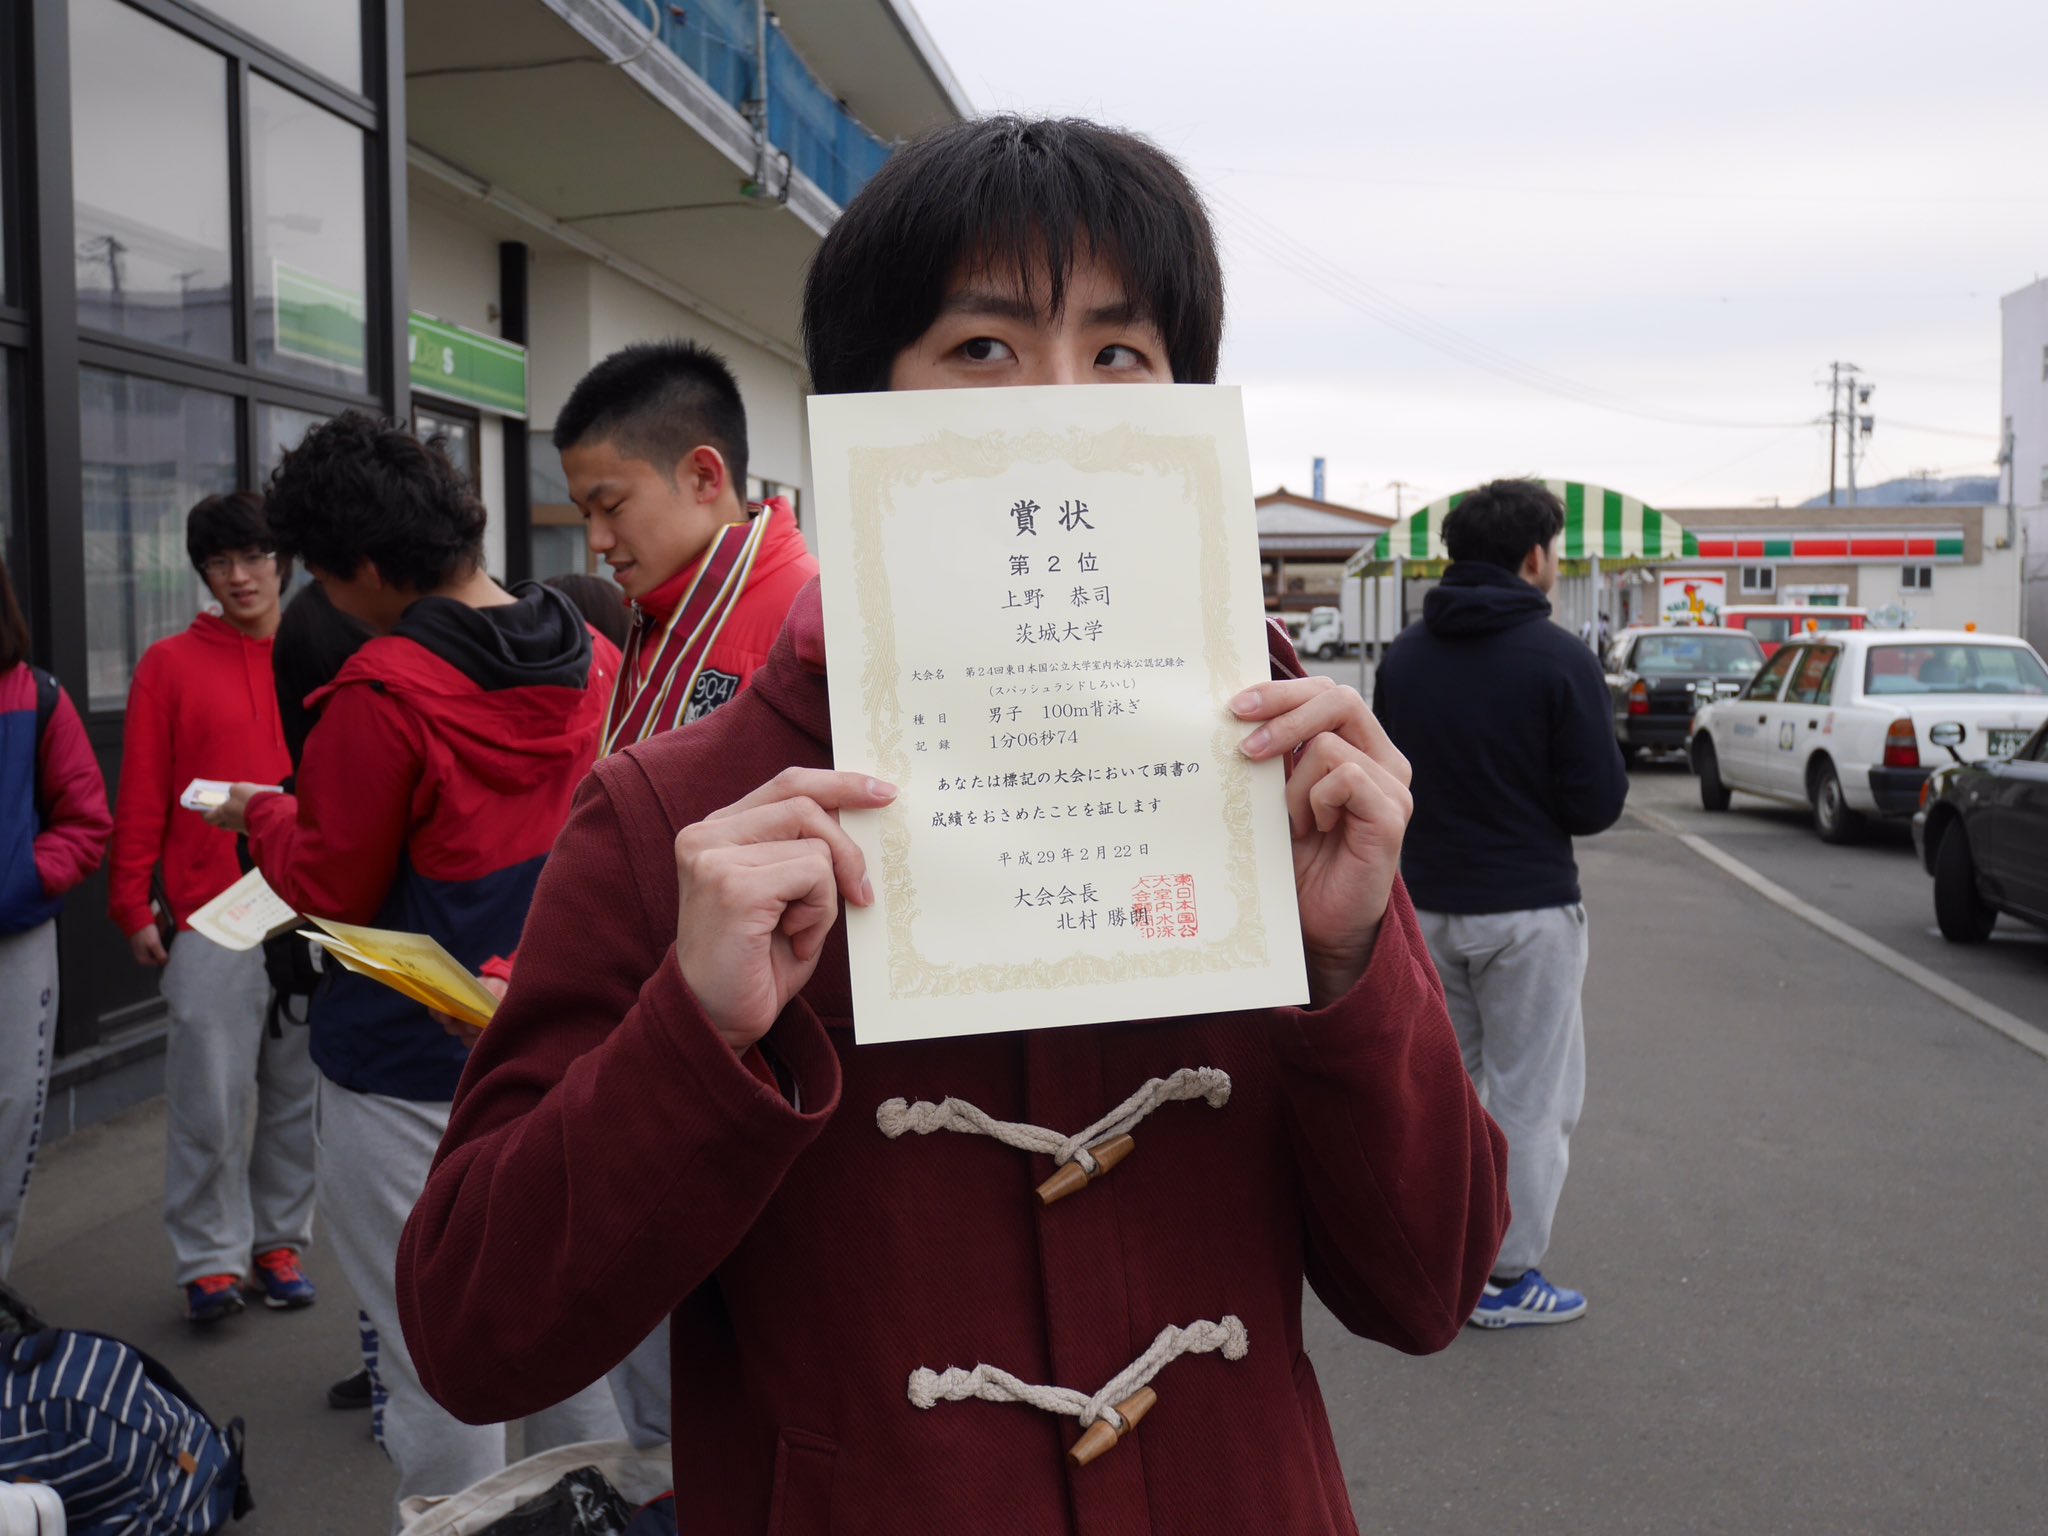 賞状
第2位
上野 恭司
茨城大学
大会名 第24回東日本国公立大学室内水泳公認記録会
(スパッシュランドしろいし)
種目 男子 100m背泳ぎ
記録 1分06秒74
あなたは標記の大会において頭書の
成績をおさめたことを証します
平成29年2月22日
大会会長
北村 勝朗
東日本国公
大室内水泳
904